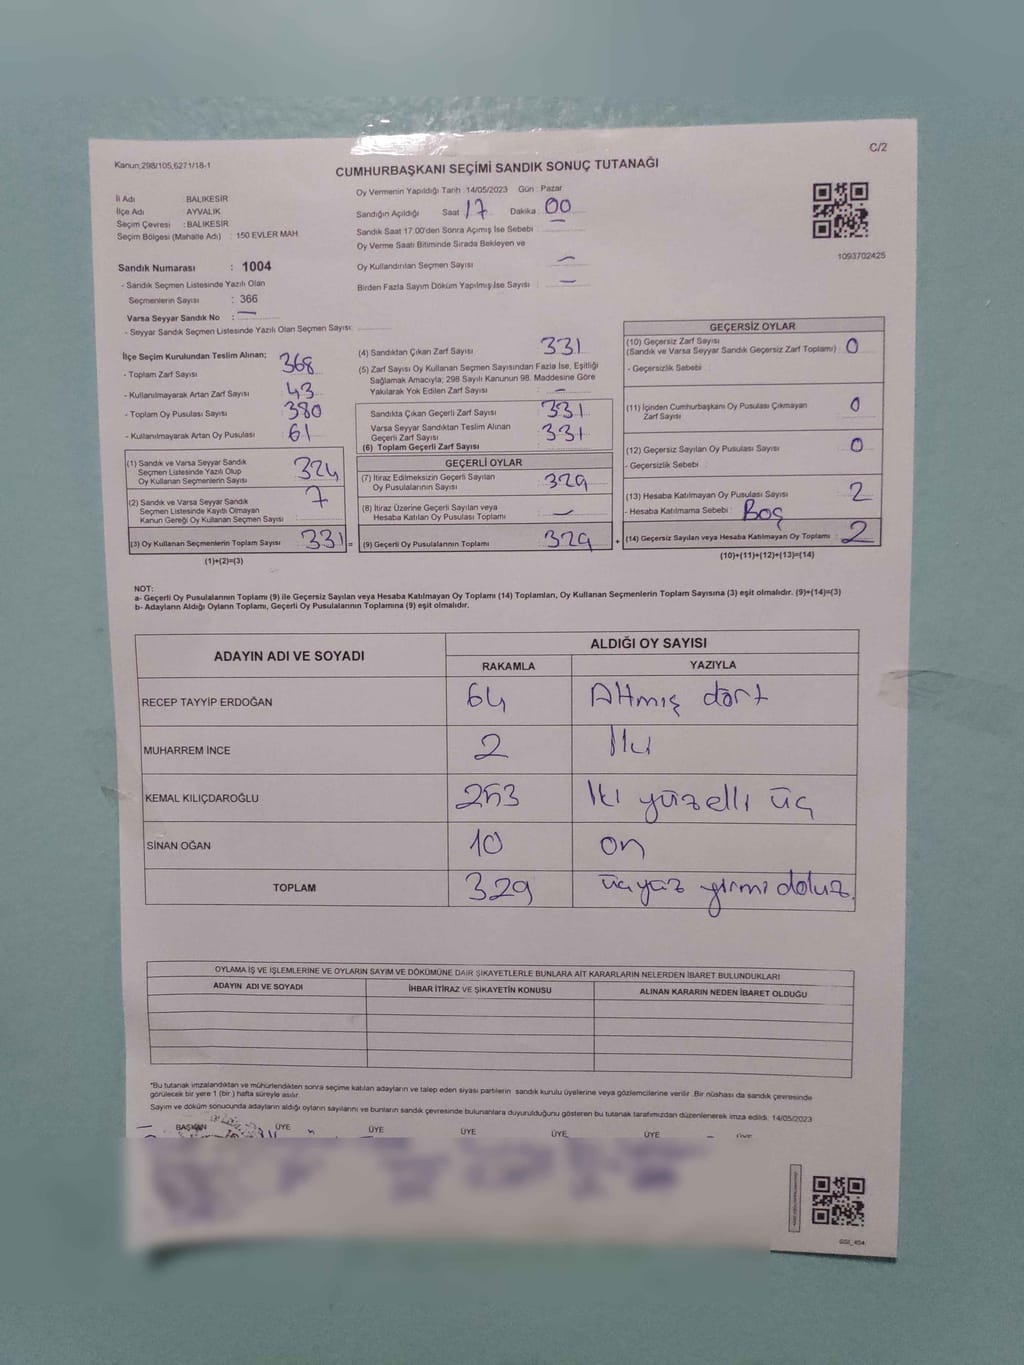 Kanun;298/105,6271/18-1
C/2
CUMHURBAŞKANI SEÇİMİ SANDIK SONUÇ TUTANAĞI
İl Adı : BALIKESİR
İlçe Adı AYVALIK
Seçim Çevresi : BALIKESİR
Seçim Bölgesi (Mahalle Adı) : 150 EVLER MAH.
Oy Vermenin Yapıldığı Tarih :14/05/2023 Gün : Pazar
Sandığın Açıldığı Saat 17 Dakika : 00
Sandık Saat 17.00'den Sonra Açımış İse Sebebi :
Oy Verme Saati Bitiminde Sırada Bekleyen ve
Oy Kullandırılan Seçmen Sayısı —
Birden Fazla Sayım Döküm Yapılmış İse Sayısı : —
1093702425
Sandık Numarası : 1004
- Sandık Seçmen Listesinde Yazılı Olan
Seçmenlerin Sayısı : 366
Varsa Seyyar Sandık No : —
- Seyyar Sandık Seçmen Listesinde Yazılı Olan Seçmen Sayısı:
İlçe Seçim Kurulundan Teslim Alınan;
- Toplam Zarf Sayısı 368
- Kullanılmayarak Artan Zarf Sayısı 43
- Toplam Oy Pusulası Sayısı 380
- Kullanılmayarak Artan Oy Pusulası 61
(1) Sandık ve Varsa Seyyar Sandık
Seçmen Listesinde Yazılı Olup
Oy Kullanan Seçmenlerin Sayısı 324
(2) Sandık ve Varsa Seyyar Sandık
Seçmen Listesinde Kaydı Olmayan
Kanun Gereği Oy Kullanan Seçmen Sayısı : 7
(3) Oy Kullanan Seçmenlerin Toplam Sayısı 331 =
(1)+(2)=(3)
(4) Sandıktan Çıkan Zarf Sayısı 331
(5) Zarf Sayısı Oy Kullanan Seçmen Sayısından Fazla İse, Eşitliği
Sağlamak Amacıyla; 298 Sayılı Kanunun 98. Maddesine Göre
Yakılarak Yok Edilen Zarf Sayısı —
Sandıkta Çıkan Geçerli Zarf Sayısı 331
Varsa Seyyar Sandıktan Teslim Alınan
Geçerli Zarf Sayısı 331
(6) Toplam Geçerli Zarf Sayısı
GEÇERLİ OYLAR
(7) İtiraz Edilmeksizin Geçerli Sayılan
Oy Pusulalarının Sayısı 329
(8) İtiraz Üzerine Geçerli Sayılan veya
Hesaba Katılan Oy Pusulası Toplamı —
(9) Geçerli Oy Pusulalarının Toplamı 329 +
GEÇERSİZ OYLAR
(10) Geçersiz Zarf Sayısı
(Sandık ve Varsa Seyyar Sandık Geçersiz Zarf Toplamı) : 0
- Geçersizlik Sebebi
(11) İçinden Cumhurbaşkanı Oy Pusulası Çıkmayan
Zarf Sayısı 0
(12) Geçersiz Sayılan Oy Pusulası Sayısı 0
- Geçersizlik Sebebi :
(13) Hesaba Katılmayan Oy Pusulası Sayısı 2
- Hesaba Katılmama Sebebi : Boş
(14) Geçersiz Sayılan veya Hesaba Katılmayan Oy Toplamı : 2
(10)+(11)+(12)+(13)=(14)
NOT:
a- Geçerli Oy Pusulasının Toplamı (9) ile Geçersiz Sayılan veya Hesaba Katılmayan Oy Toplamı (14) Toplamları, Oy Kullanan Seçmenlerin Toplam Sayısına (3) eşit olmalıdır. (9)+(14)=(3)
b- Adayların Aldığı Oyların Toplamı, Geçerli Oy Pusulalarının Toplamına (9) eşit olmalıdır.
ADAYIN ADI VE SOYADI ALDIĞI OY SAYISI
RAKAMLA YAZIYLA
RECEP TAYYİP ERDOĞAN 64 Altmış dört
MUHARREM İNCE 2 İki
KEMAL KILIÇDAROĞLU 253 İki yüzelli üç
SİNAN OĞAN 10 on
TOPLAM 329 üçyüz yirmi dokuz.
OYLAMA İŞ VE İŞLEMLERİNE VE OYLARIN SAYIM VE DÖKÜMÜNE DAİR ŞİKAYETLERLE BUNLARA AİT KARARLARIN NELERDEN İBARET BULUNDUKLARI
ADAYIN ADI VE SOYADI İHBAR İTİRAZ VE ŞİKAYETİN KONUSU ALINAN KARARIN NEDEN İBARET OLDUĞU
*Bu tutanak imzalandıktan ve mühürlendikten sonra seçime katılan adayların ve talep eden siyasi partilerin sandık kurulu üyelerine veya gözlemcilerine verilir .Bir nüshası da sandık çevresinde
görülecek bir yere 1 (bir ) hafta süreyle asılır.
Sayım ve döküm sonucunda adayların aldığı oyların sayılarını ve bunların sandık çevresinde bulunanlara duyurulduğunu gösteren bu tutanak tarafımızdan düzenlenerek imza edildi. 14/05/2023
BAŞKAN ÜYE ÜYE ÜYE ÜYE ÜYE ÜYE